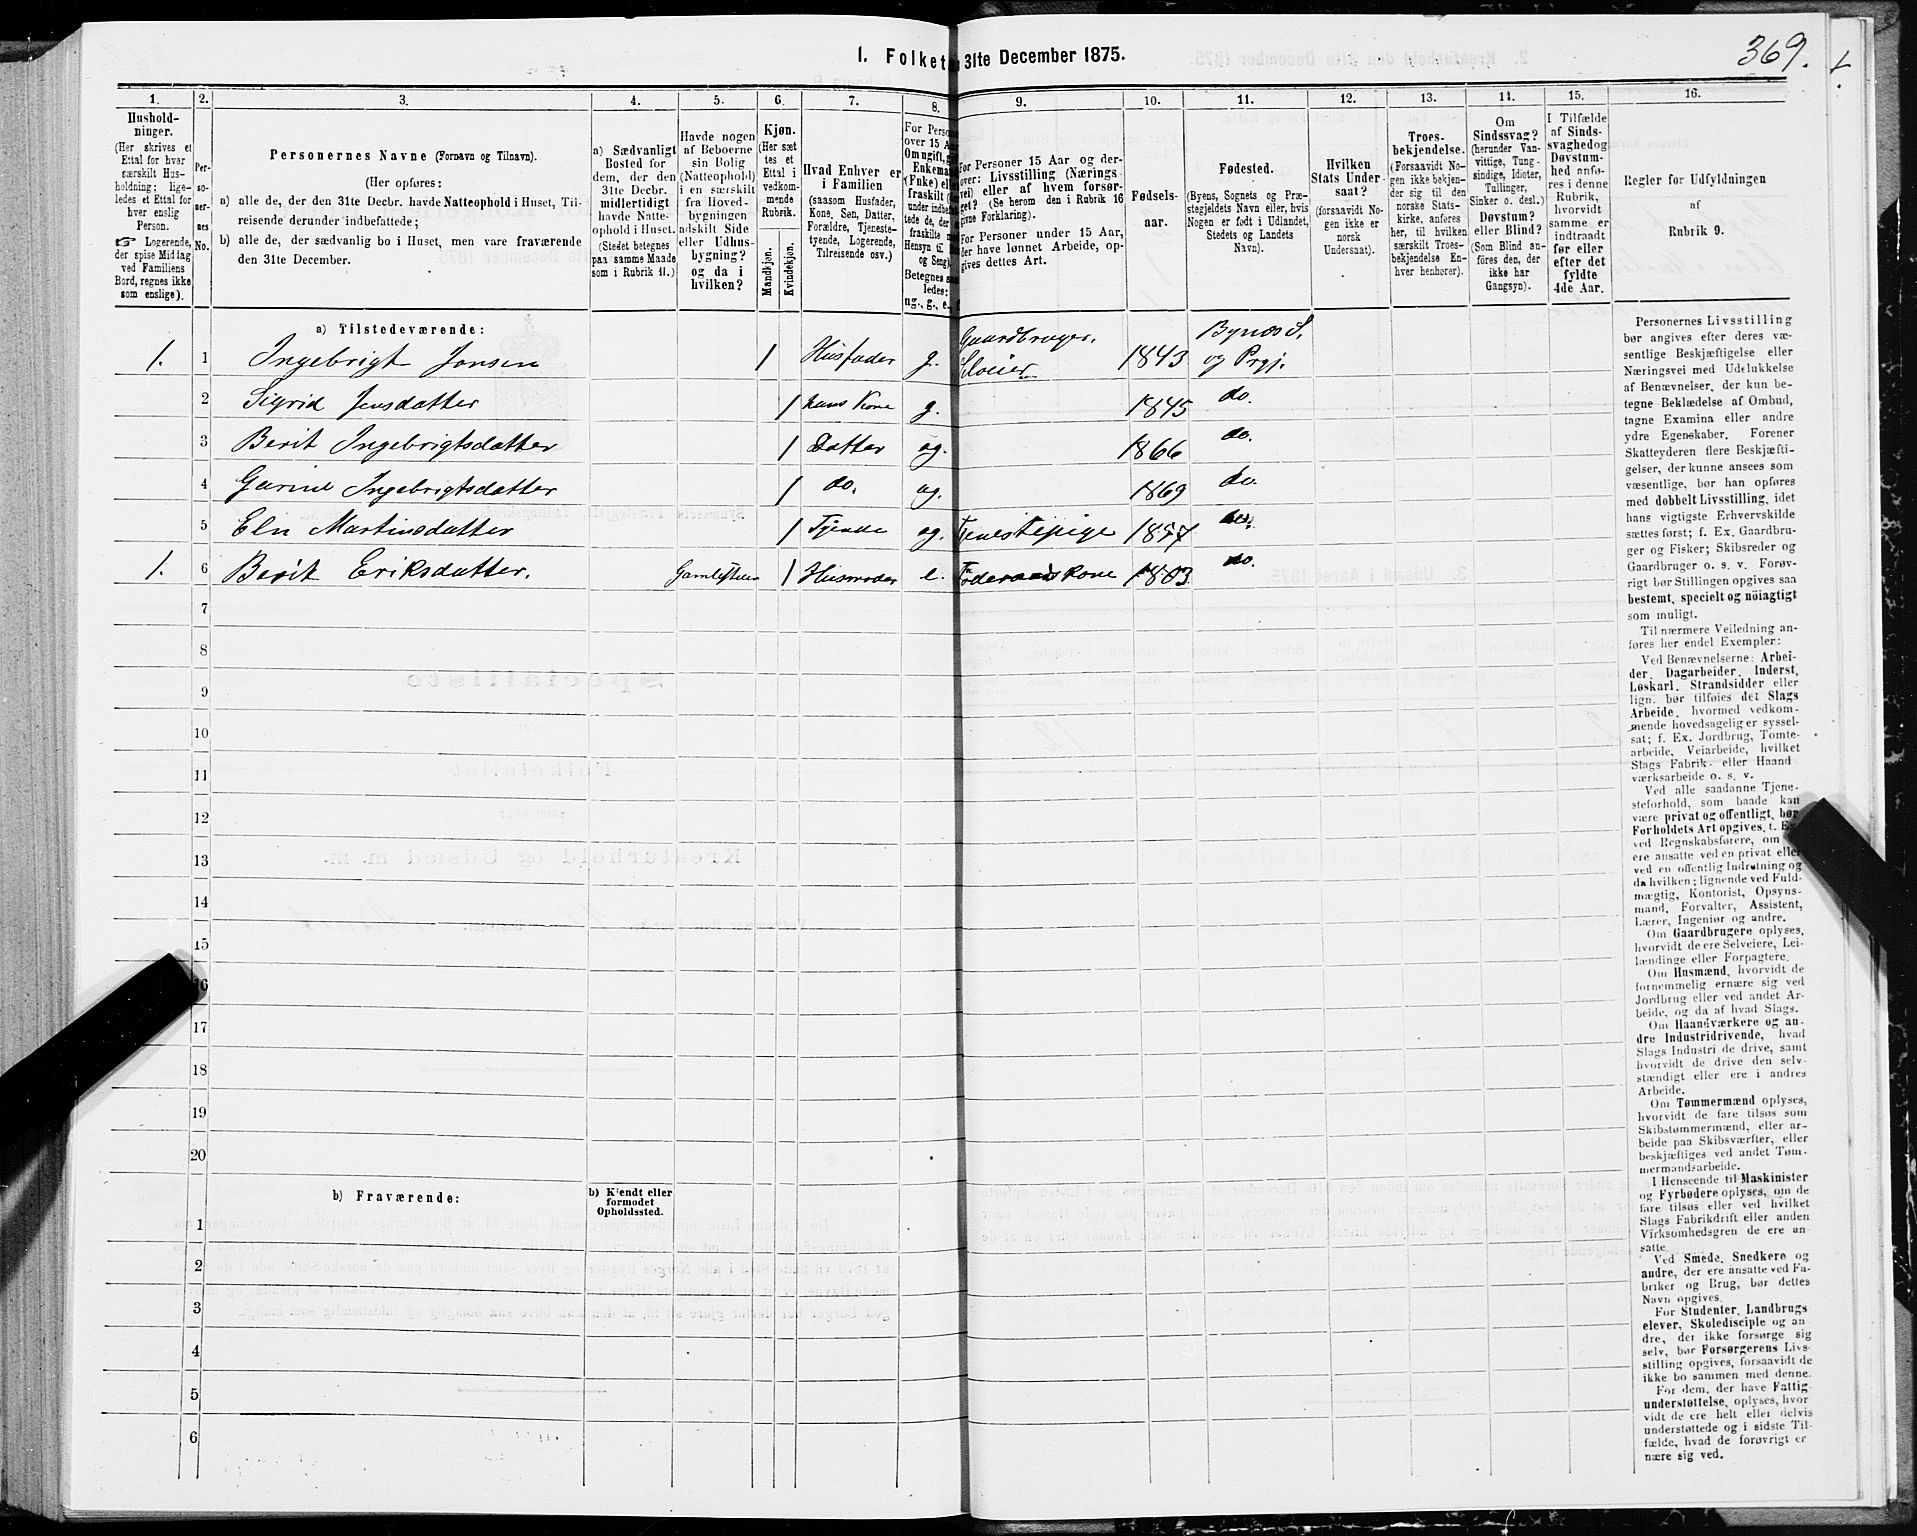 1. Folket
31te December 1875.
369.
1. 2. 3. 4. 5. 6. 7. 8. 9. 10. 11. 12. 13. 14. 15. 16.
Hushold-
ninger.
(Her skrives et
Ettal for hver
særskilt Hus-
holdning; lige-
ledes et Ettal for
hver enslig
Person.
☞ Logerende,
der spise Middag
ved Familiens
Bord, regnes ikke
som enslige).
Per-
so-
ner-
nes
No.
Personernes Navne (Fornavn og Tilnavn).
(Her opføres:
a) alle de, der den 31te Decbr. havde Natteophold i Huset, Til-
reisende derunder indbefattede;
b) alle de, der sædvanlig bo i Huset, men vare fraværende
den 31te December.
a) Sædvanligt
Bosted for
dem, der den
31te Decbr.
midlertidigt
havde Natte-
ophold i Huset.
(Stedet betegnes
paa samme Maade
som i Rubrik 11.)
Havde nogen
af Beboerne
sin Bolig
(Natteophold)
i en særskilt
fra Hoved-
bygningen
adskilt Side
eller Udhus-
bygning?
og da i
hvilken?
Kjøn.
(Her sæt
tes et
Ettal i
vedkom-
mende
Rubrik.
Mandkjøn.
Kvindekjøn.
Hvad Enhver er
i Familien
(saasom Husfader,
Kone, Søn, Datter,
Forældre, Tjeneste-
tyende, Logerende,
Tilreisende osv.)
For Person
over 15 Aar
Om ugift, gif
Enkemand
(Enke) elle
fraskilt
under indbefat
tede de, der
fraskilte
Hensyn til
og Seng).
Betegnes saa
ledes:
ug., g., e.
For Personer 15 Aar og der-
over: Livsstilling (Nærings
vei) eller af hvem forsør-
get? (Se herom den i Rubrik 16
givne Forklaring).
For Personer under 15 Aar,
der have lønnet Arbeide, op-
gives dettes Art.
Fødsels-
aar.
Fødested.
(Byens, Sognets og Præ-
stegjeldets Navn eller, hvis
Nogen er født i Udlandet,
Stedets og Landets
Navn).
Hvilken
Stats Under
saat?
(forsaavidt No-
gen ikke er
norsk
Undersaat).
Troes-
bekjendelse.
(Forsaavidt No-
gen ikke bekjen-
der sig til den
norske Stats-
kirke, anføres
her, til hvilken
særskilt Troes-
bekjendelse En-
hver henhører).
Om
Sindssvag?
(herunder Van-
vittige, Tung-
sindige, Idioter,
Tullinger,
Sinker o. desl.)
Døvstum?
eller Blind?
(Som Blind an-
føres den, der
ikke har
Gangsyn).
I Tilfælde
af Sinds-
svaghed og
Døvstum-
hed anfø-
res i denne
Rubrik,
hvorvidt
samme er
indtraadt
før eller
efter det
fyldte
4de Aar.
Regler for Udfyldningen
af
Rubrik 9.
a) Tilstedeværende:
1. 1 Ingebrigt Jonsen 1 Husfader g. Gaardbruger. Selveier 1843 Bynæs S. og Prgj.
2 Sigrid Jensdatter 1 hans Kone g. 1845 do.
3 Berit Ingebrigtsdatter 1 Datter ug. 1866 do.
4 Gurine Ingebrigtsdatter 1 do. ug. 1869 do.
5 Eln Martinsdatter 1 Tjende ug. Tjenestepige 1857 do.
1. 6 Berit Eriksdatter. 1 Husmoder e. Føderaadskone 1803 do.
7
8
9
10
11
12
13
14
15
16
17
18
19
20
b) Fraværende:
b) Kjendt eller
formodet
Opholdssted.
1
2
3
4
5
6
Personernes Livsstilling
bør angives efter deres væ-
sentlige Beskjæftigelse eller
Næringsvei med Udelukkelse
af Benævnelser, der kun be-
tegne Beklædelse af Ombud,
tagne Examina eller andre
ydre Egenskaber. Forener
Skatteyderen flere Beskjæfti-
gelser, der kunne ansees som
væsentlige, bør han opføres
med dobbelt Livsstilling, idet
hans vigtigste Erhvervskilde
sættes først; f. Ex. Gaardbru-
ger og Fisker; Skibsreder og
Gaardbruger o. s. v. Forøv-
rigt bør Stillingen opgives saa
bestemt, specielt og nöiagtigt
som muligt.
Til nærmere Veiledning an-
føres her endel Exempler:
Ved Benævnelserne: Arbei-
der, Dagarbeider, Inderst,
Løskarl, Strandsidder eller
lign. bør tilføies det Slags
Arbeide, hvormed vedkom-
mende hovedsagelig er syssel-
sat; f. Ex. Jordbrug, Tomte-
arbeide, Veiarbeide, hvilket
Slags Fabrik- eller Haand
værksarbeide o. s. v.
Ved alle saadanne Tjene-
steforhold, som baade kan
være privat og offentligt, bør
Forholdets Art opgives, t. E
ved Regnskabsførere, om
ere ansatte ved en privat elle
ved en offentlig Indretning og
da hvilken; lignende ved Fuld-
mægtig, Kontorist, Opsyns-
mand, Forvalter, Assistent,
Lærer, Ingeniør og andre.
Om Gaardbrugere oplyses,
hvorvidt de ere Selveiere, Lei-
lændinge eller Forpagtere.
Om Husmænd, hvorvidt de
fornemmelig ernære sig ved
Jordbrug eller ved andet Ar-
beide, og da af hvad Slags.
Om Haandværkere og an-
dre Industridrivende, hvad
Slags Industri de drive, samt
hvorvidt de drive den selv-
stændigt eller ere i andres
Arbeide.
Om Tømmermænd oplyses,
hvorvidt de fare tilsøs som
Skibstømmermænd, eller ar-
beide paa Skibsværfter, eller
beskjæftiges ved andet Tøm-
mermandsarbeide.
I Henseende til Maskinister
og Fyrbødere oplyses, om de
fare tilsøs eller ved hvilket
Slags Fabrikdrift eller anden
Virksomhedsgren de ere an-
satte.
Ved Smede, Snedkere og
andre, der ere ansatte ved Fa-
briker og Brug, bør dettes
Navn opgives.
For Studenter, Landbrugs
elever, Skoledisciple og an
dre, der ikke forsørge sig
selv, bør Forsørgerens Livs-
stilling opgives, forsaavidt de
ikke bo sammen med denne.
For dem, der have Fattig-
understøttelse, oplyses, hvor
vidt de ere helt eller delvis
understøttede og i sidste Til-
fælde, hvad de forøvrigt er
nære sig ved.